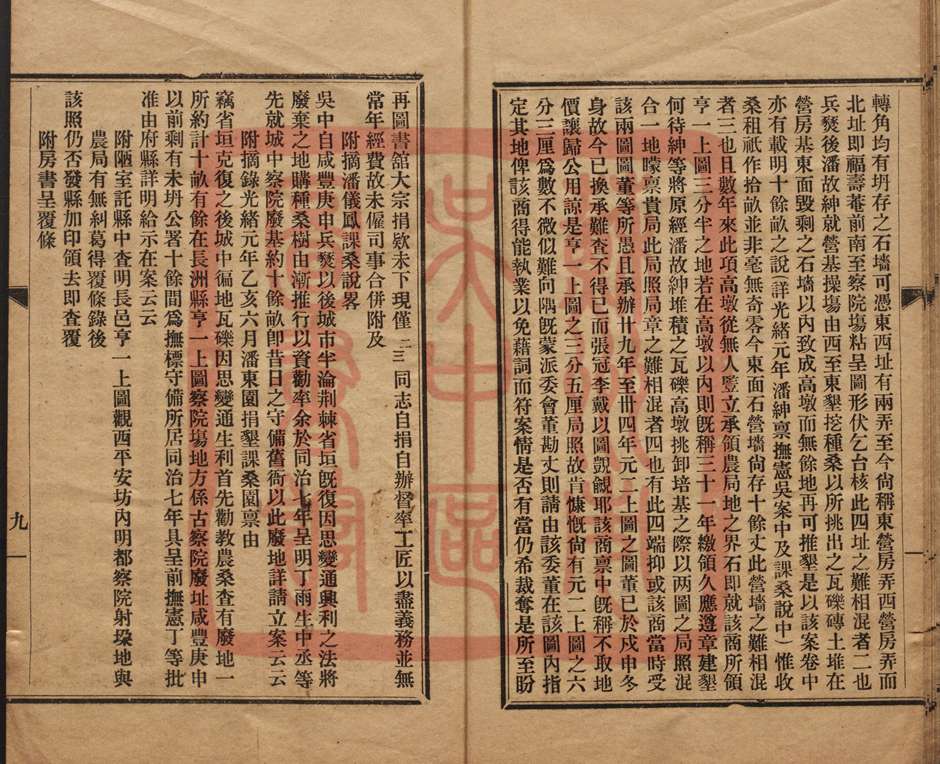 轉角均有坍存之石墻可憑東西址有兩弄至今尙稱東營房弄西營房弄而
北址卽福壽菴前南至察院塲粘呈圖形伏乞台核此四址之難相混者二也
兵燹後潘故紳就營基操塲由西至東墾挖種桑以所挑出之瓦礫磚土堆在
營房基東面毁剩之石墻以內致成高墩而無餘地再可推墾是以該案卷中
亦有載明十餘畝之說（詳光緖元年潘紳禀撫憲吳案中及課桑說中）惟收
桑租祇作拾畝並非毫無奇零今東面石營墻尙存十餘丈此營墻之難相混
者三也且數年來此項高墩從無人豎立承領農局地之界石卽就該商所領
亨一上圖三分半之地若在高墩以內則旣稱三十一年繳領久應遵章建墾
何待紳等將原經潘故紳堆積之瓦礫高墩挑卸培基之際以兩圖之局照混
合一地矇禀貴局此局照局章之難相混者四也有此四端抑或該商當時受
該兩圖圖董等所愚且承辦廿九年至卅四年元二上圖之圖董已於戍申冬
身故今已換承難查不得已而張冠李戴以圖覬覦耶該商禀中旣稱不取地
價讓歸公用諒是亨一上圖之三分五厘局照故肯慷慨尙有元二上圖之六
分三厘爲數不微似難向隅旣蒙派委會董勘丈則請由該委董在該圖內指
定其地俾該商得能執業以免藉詞而符案情是否有當仍希裁奪是所至盼
再圖書舘大宗捐欵未下現僅二三同志自捐自辦督率工匠以盡義務並無
常年經費故未僱司事合併附及
附摘潘儀鳳課桑說畧
吳中自咸豐庚申兵燹以後城市半淪荆棘省垣旣復因思變通興利之法將
廢棄之地購種桑樹由漸推行以資勸率余於同治七年呈明丁雨生中丞等
先就城中察院廢基約十餘畝卽昔日之守備舊衙以此廢地詳請立案云云
附摘錄光緖元年乙亥六月潘東園捐墾課桑園禀由
竊省垣克復之後城中徧地瓦礫因思變通生利首先勸敎農桑查有廢地一
所約計十畝有餘在長洲縣亨一上圖察院塲地方係古察院廢址咸豐庚申
以前剩有未坍公署十餘間爲撫標守備所居同治七年具呈前撫憲丁等批
准由府縣詳明給示在案云云
附陋室託縣中查明長邑亨一上圖觀西平安坊內明都察院射垜地與
農局有無糾葛得覆條錄後
該照仍否發縣加印領去卽查覆
附房書呈覆條
九